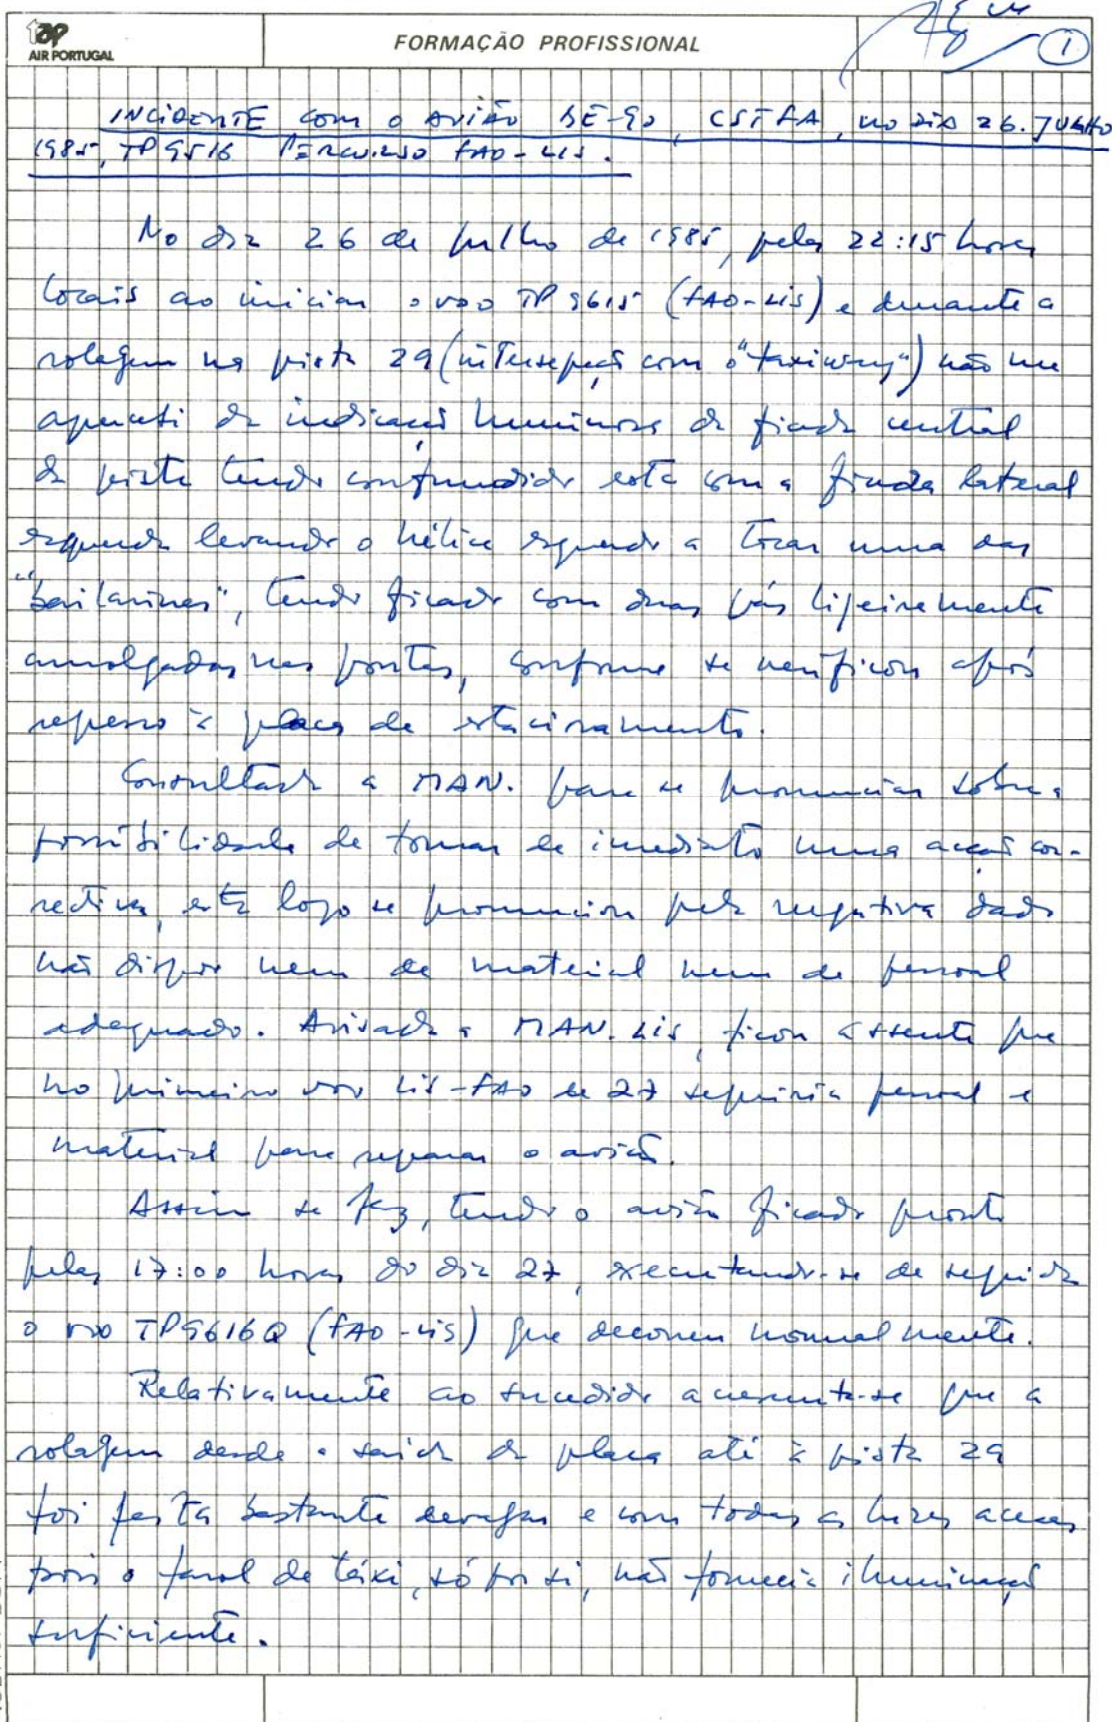 tap
AIR PORTUGAL
FORMAÇÃO PROFISSIONAL
1
INCIDENTE COM O AVIÃO BE-90, CSTFA, NO DIA 26. JULHO
1985, TP 9516 PERCURSO FAO-LIS.
No dia 26 de Julho de 1985, pelas 22:15 horas
locais ao iniciar o voo TP 9615 (FAO-LIS) e durante a
rolagem na pista 29 (intersepção com o "taxiway") não me
apercebi da indicação luminosa da fiada central
da pista tendo confundido esta com a fiada lateral
esquerda levando o hélice esquerdo a tocar uma das
"bailarinas", tendo ficado com duas pás ligeiramente
amolgadas nas pontas, conforme se verificou após
regresso à placa de estacionamento.
Consultada a MAN. para se pronunciar sobre a
possibilidade de tomar de imediato uma acção cor-
rectiva, esta logo se pronunciou pela negativa dado
não dispor nem de material nem de pessoal
adequado. Avisada a MAN. LIS, ficou assente que
no primeiro voo LIS-FAO de 27 seguiria pessoal e
material para reparar o avião.
Assim se fez, tendo o avião ficado pronto
pelas 17:00 horas do dia 27, executando-se de seguida
o voo TP9616Q (FAO-LIS) que decorreu normalmente.
Relativamente ao sucedido acrescenta-se que a
rolagem desde a saída da placa até à pista 29
foi feita bastante devagar e com todas as luzes acesas
pois o farol de táxi, só por si, não fornecia iluminação
suficiente.